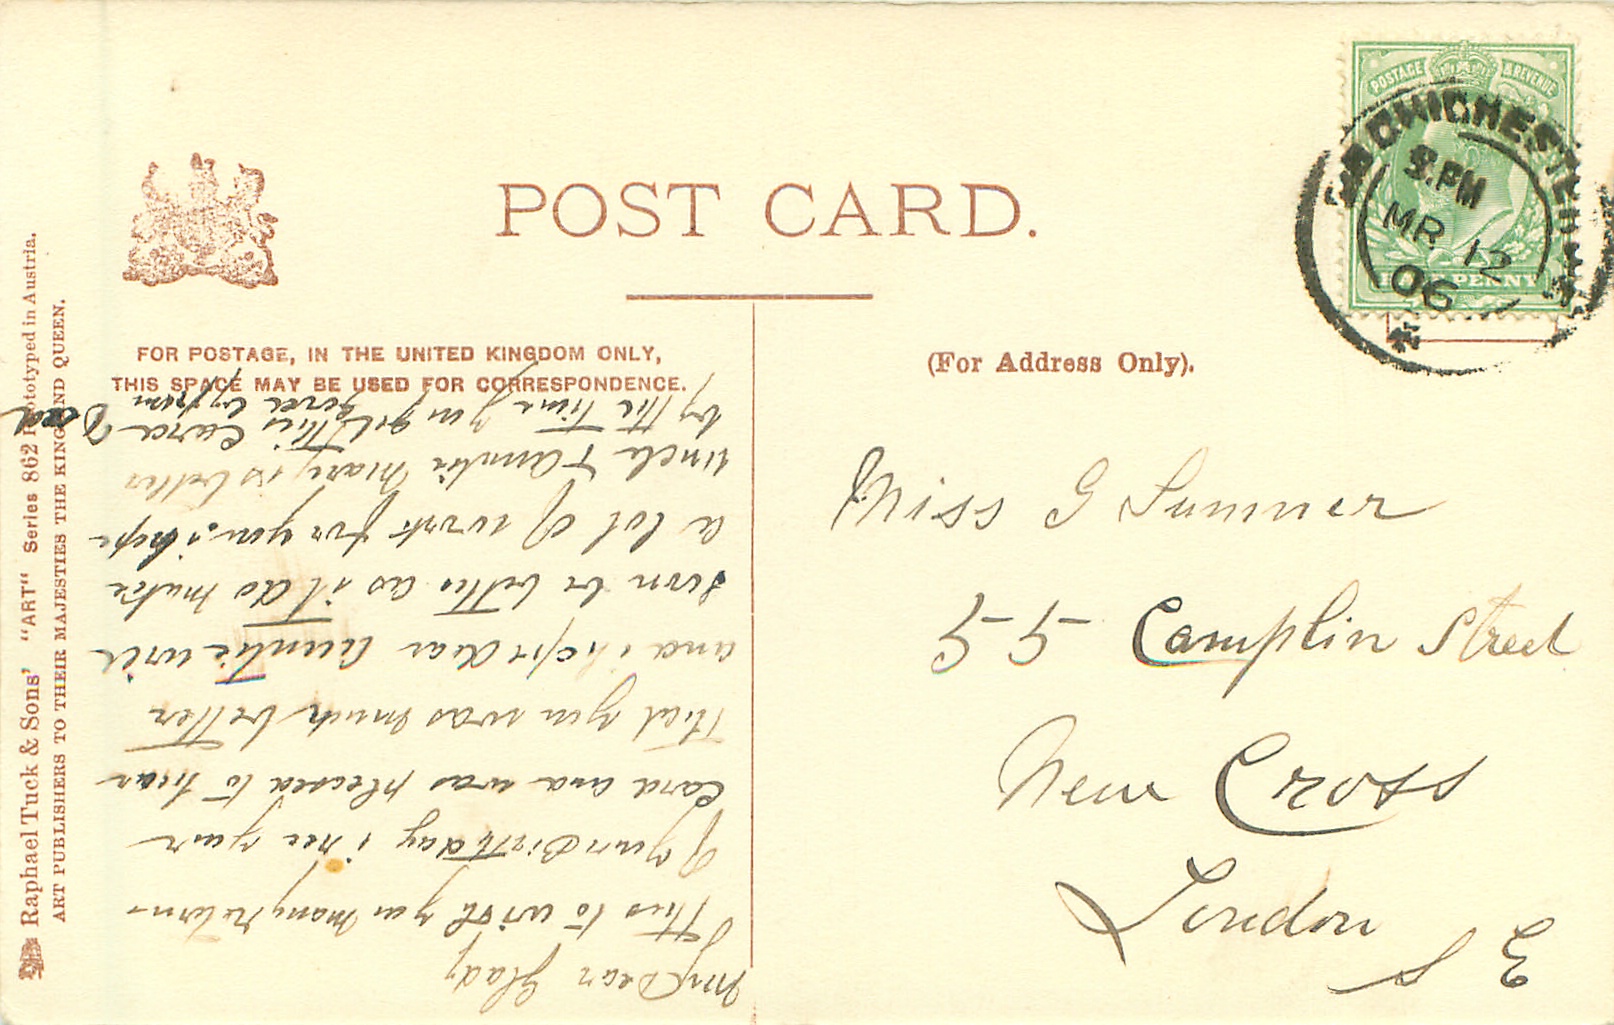 POST CARD.
FOR POSTAGE, IN THE UNITED KINGDOM ONLY,
THIS SPACE MAY BE USED FOR CORRESPONDENCE.
(For Address Only).
POSTAGE & REVENUE
PENNY
8.PM
MR 12
06
Miss G Sumner
55 Camplin Street
New Cross
London
S E
My Dear Glady
This to wish you many Returns
of your Birthday i see your
Card and was pleased to hear
that you was much better
and i hope dear Auntie will
soon be better as it do make
a lot of work for you. i hope
Uncle & Auntie Mary is better
by the time you get this Card
from
Dad
Raphael Tuck & Sons' "ART" Series 862 Prototyped in Austria.
ART PUBLISHERS TO THEIR MAJESTIES THE KING AND QUEEN.